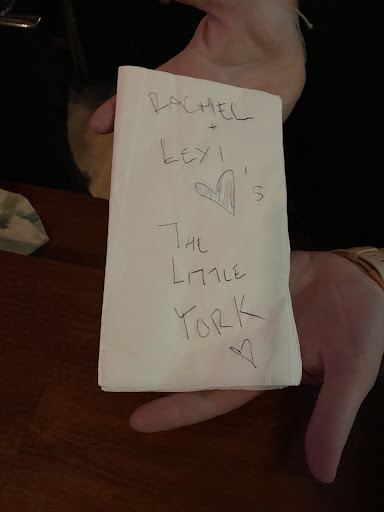 RACHEL
+
LEVI
♥'s
THE
LITTLE
YORK
♡